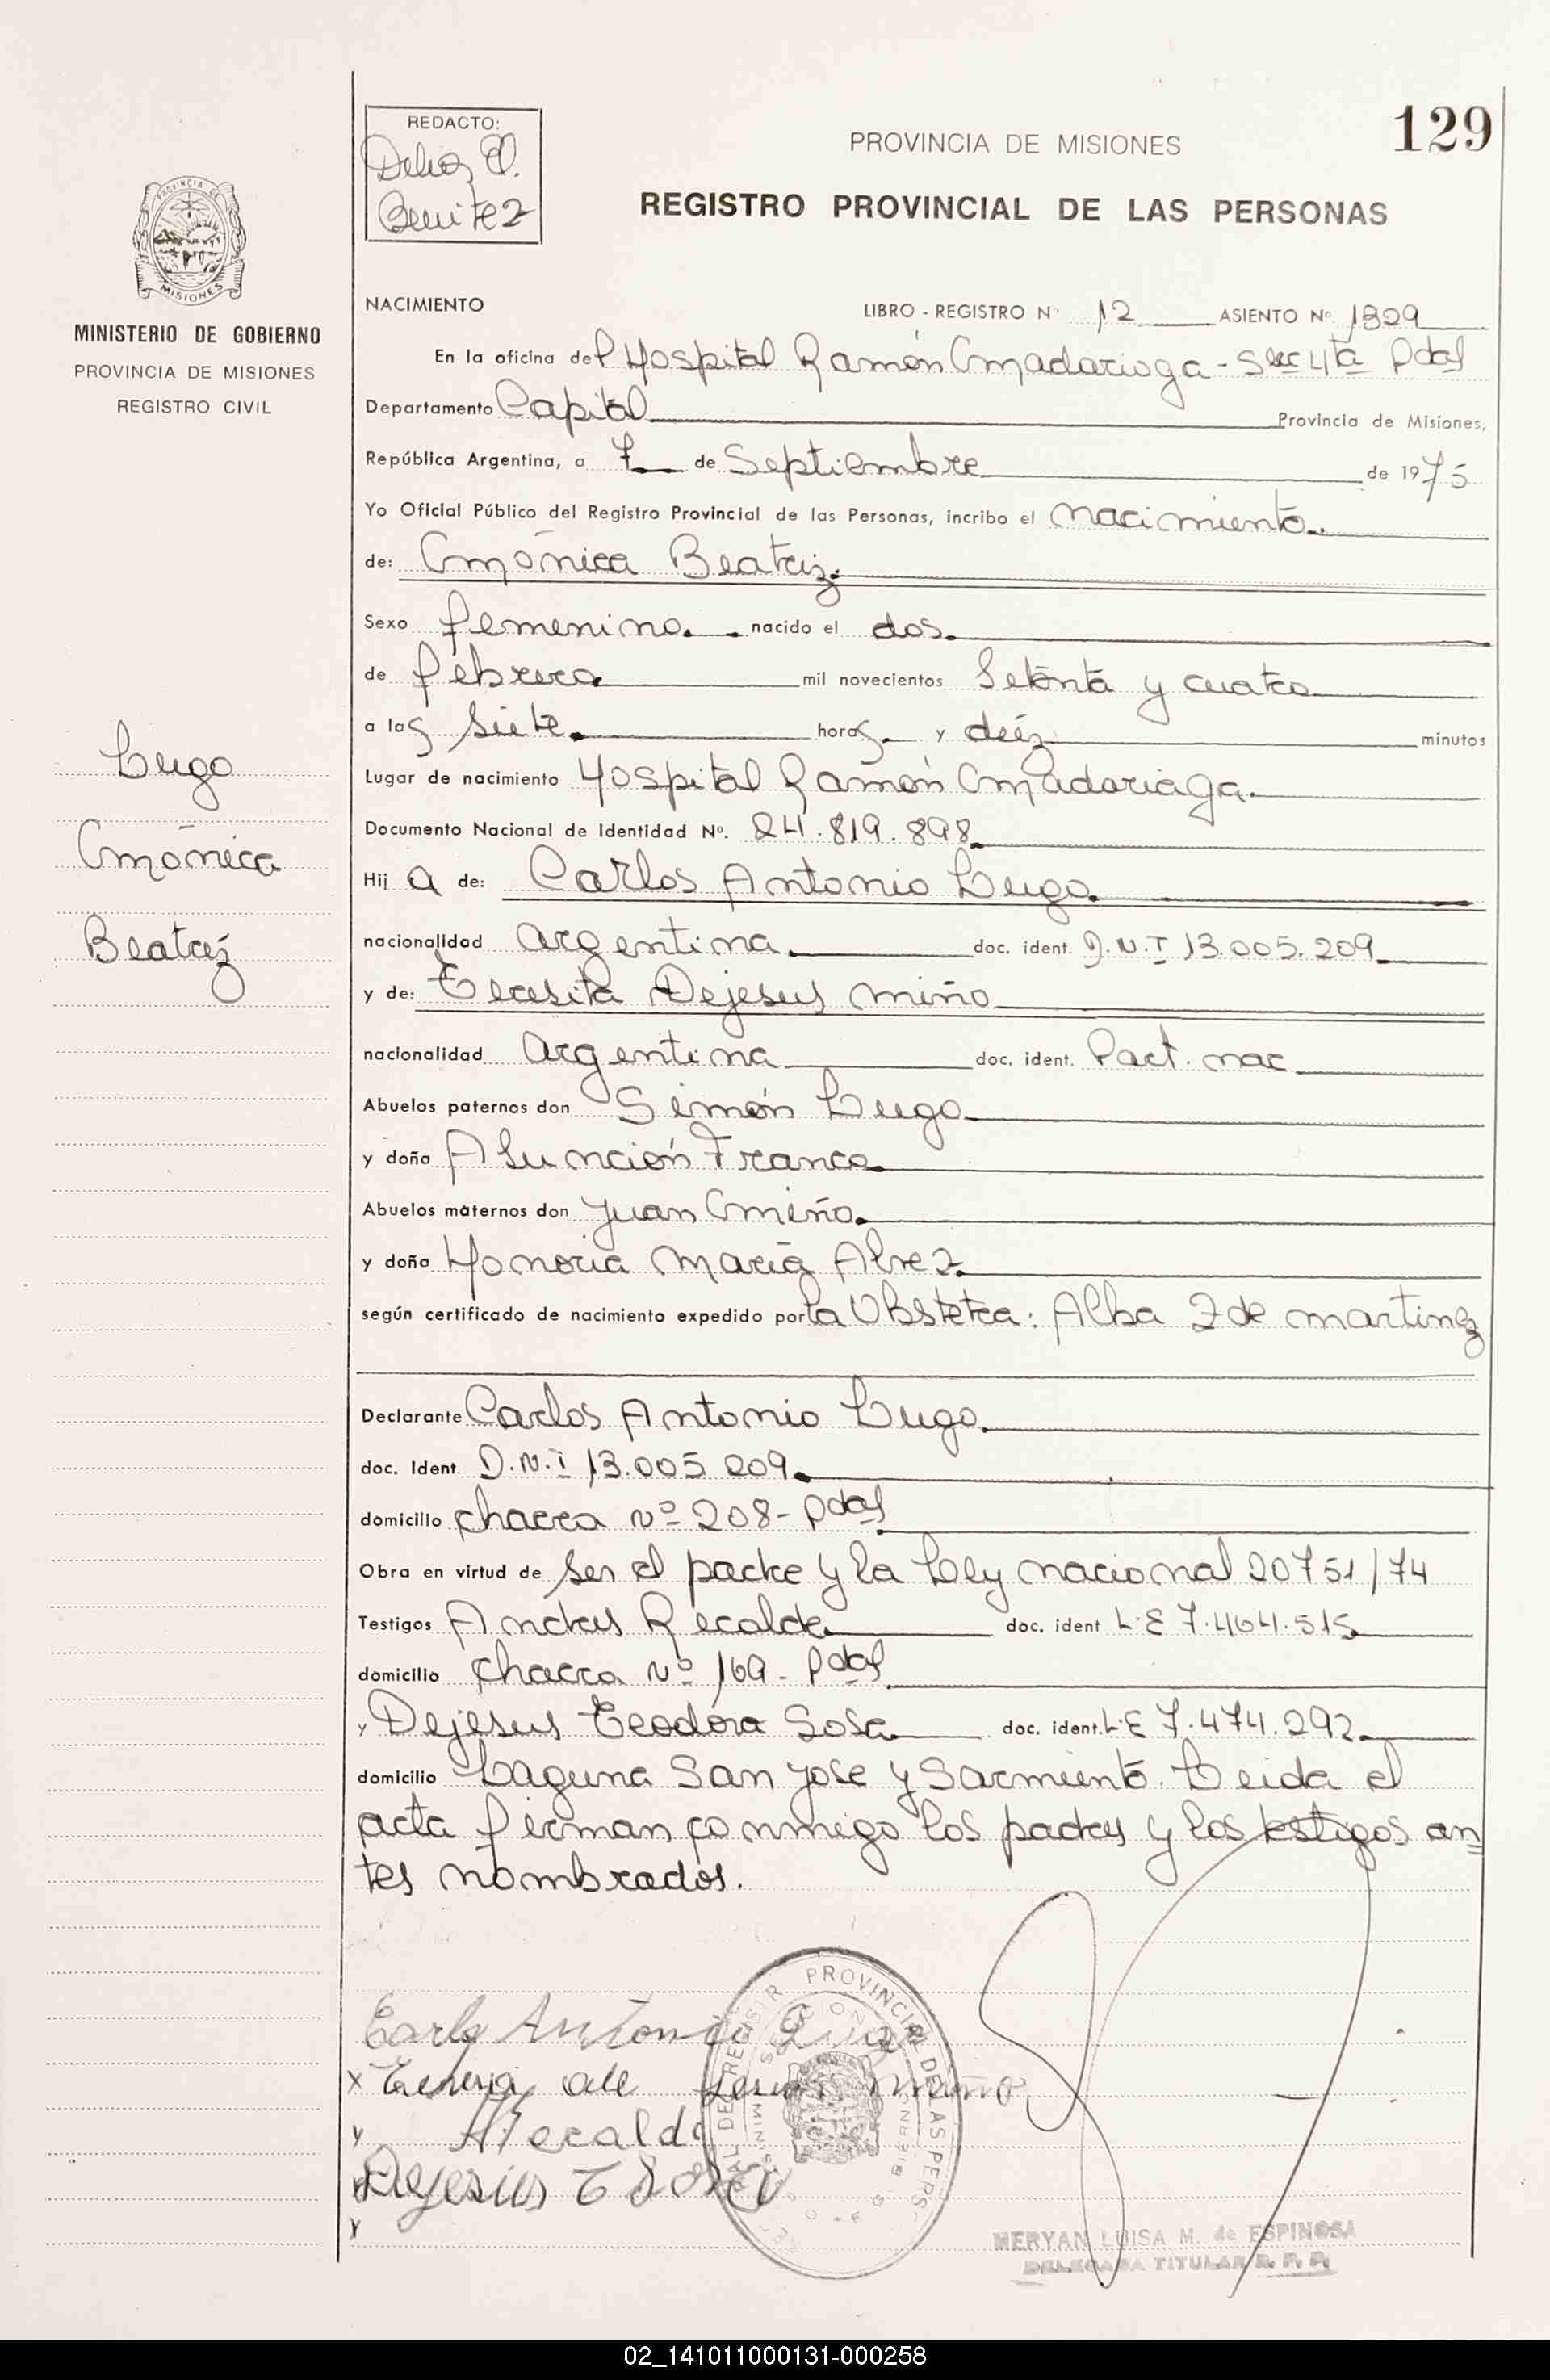 129
REDACTO:
Delia E.
Benitez
PROVINCIA DE MISIONES
REGISTRO PROVINCIAL DE LAS PERSONAS
PROVINCIA DE
MISIONES
MINISTERIO DE GOBIERNO
PROVINCIA DE MISIONES
REGISTRO CIVIL
NACIMIENTO LIBRO - REGISTRO Nº 12 ASIENTO Nº 1309
En la oficina del Hospital Ramón Madariaga - Secc 4ta Pdas
Departamento Capital Provincia de Misiones,
República Argentina, a 7 de Septiembre de 1975
Yo Oficial Público del Registro Provincial de las Personas, incribo el nacimiento.
de: Mónica Beatriz.
Sexo femenino. nacido el dos.
de febrero mil novecientos Setenta y cuatro
a las Siete. horas y diéz minutos
Lugar de nacimiento Hospital Ramón Madariaga.
Documento Nacional de Identidad Nº. 24.819.898
Hij a de: Carlos Antonio Lugo.
nacionalidad argentina. doc. ident. D.N.I 13.005.209
y de: Teresita Dejesus miño
nacionalidad argentina doc. ident. Part. nac
Abuelos paternos don Simón Lugo
y doña Asunción Franco.
Abuelos maternos don Juan Miño.
y doña Honoria María Alvez.
según certificado de nacimiento expedido por la Obstetra: Alba Z de martinez
Declarante Carlos Antonio Lugo.
doc. Ident. D.N.I 13.005.209.
domicilio chacra Nº 208 - Pdas
Obra en virtud de ser el padre y la Ley nacional 20751/74
Testigos Andres Recalde doc. ident L.E 7.464.515
domicilio chacra Nº 169 - Pdas
y Dejesus Teodóro Sosa doc. ident. L.E 7.474.292
domicilio Laguna San Jose y Sarmiento. Leida el
acta firman conmigo los padres y los testigos an
tes nombrados.
Lugo
Mónica
Beatriz
Carlos Antonio Lugo
x Teresa de Jesus Miño
y ARecalde
Dejesus T Sosa
y
MERYAN LUISA M. de ESPINOSA
DELEGADA TITULAR R. P. P.
02_141011000131-000258